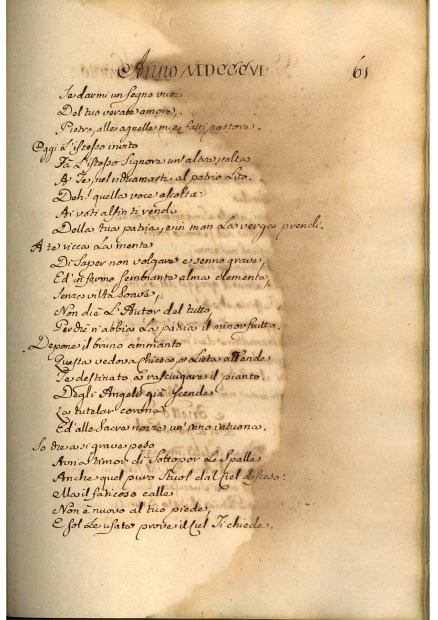 Anno MDCCCVI 61
Se darmi un segno vuoi
Del tuo verace amore,
Pietro, alle agnelle mie fatti pastore.
Oggi l'istesso invito
Fa l'istesso Signore un'altra volta
A Te, nel richiamarti al patrio Lito.
Deh! quella voce ascolta:
Ai voti alfin ti rendi
Della tua patria, e in man la verga prendi.
A te ricca la mente
Di saper non volgare e senno grave,
Ed in fermo sembiante alma clemente,
Senza viltà soave,
Non diè l'Autor del tutto,
Perchè n'abbia la patria il minor frutto.
Depone il bruno ammanto
Questa vedova Chiesa, e lieta attende
Te destinato a rasciugare il pianto.
Degli Angeli già scende
La tutelar corona,
Ed alle sacre nozze un' inno intuona.
So che a sì grave peso
Avria timor di sottopor le spalle
Anche quel puro stuol dal Ciel disceso:
Ma il faticoso calle
Non è nuovo al tuo piede,
E sol le usate prove il Ciel Ti chiede.